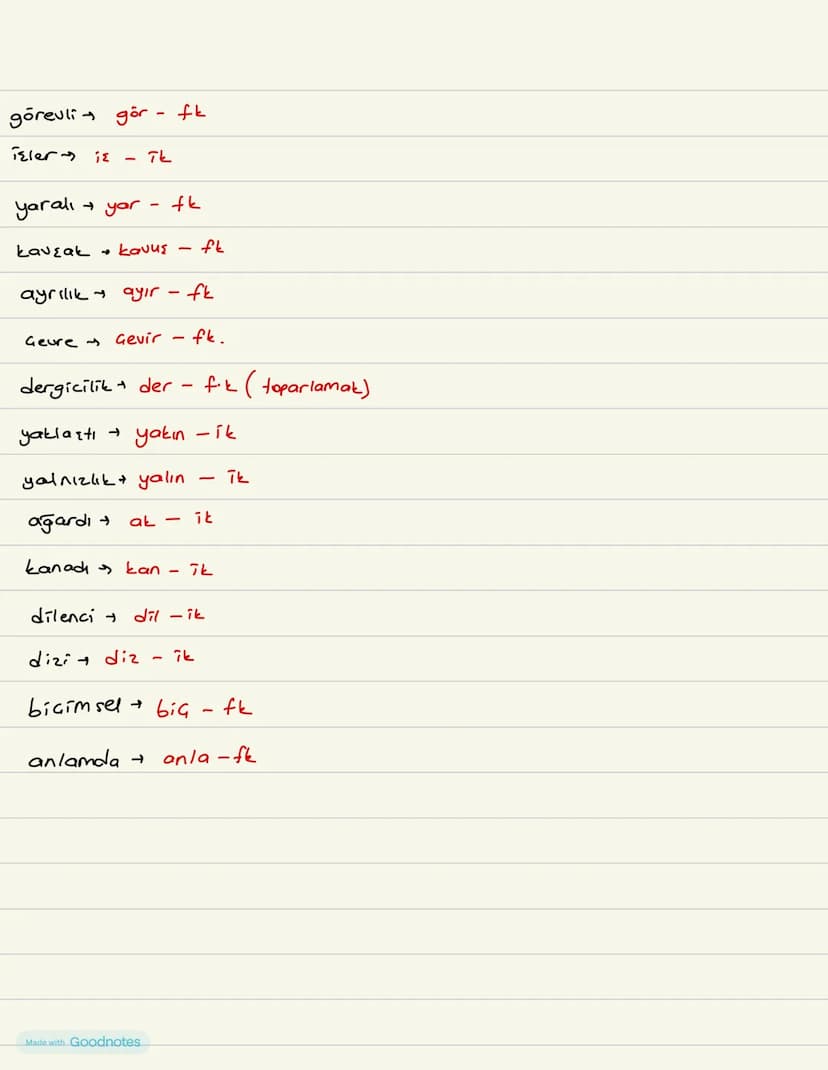 görevli → gör - fk
işler → iş - ik
yaralı → yar - fk
kavşak → kavuş - fk
ayrılık → ayır - fk
Çevre → Çevir - fk.
dergicilik → der - f.k ( toparlamak)
yaklaştı → yakın - ik
yalnızlık → yalın - ik
ağardı → ak - ik
kanadı → kan - ik
dilenci → dil - ik
dizi → diz - ik
biçimsel → biç - fk
anlamda → anla - fk
Made with Goodnotes